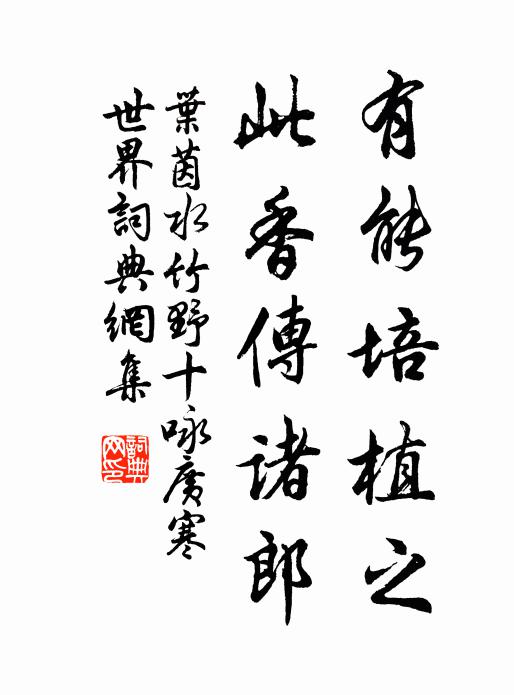 有能培植之
此香傳諸郎
葉茵水竹野十咏廣寒
世界詞典網集
詞典網印